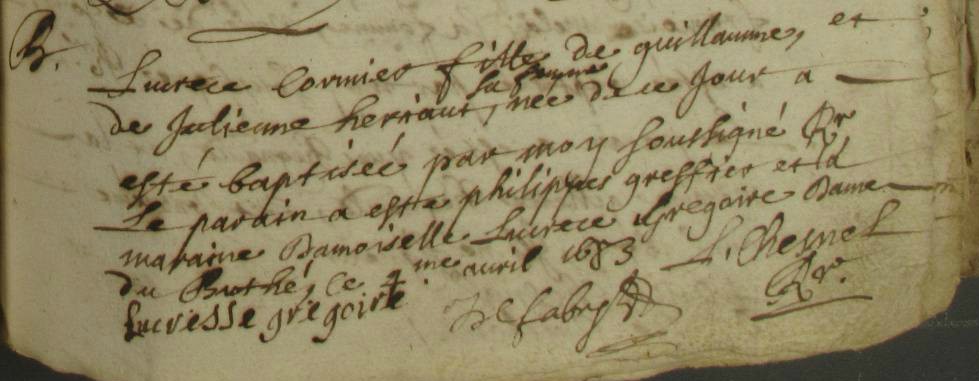 B.
Lucrece Cormier fille de guillaume, et
sa femme
de Julienne herriaut, née de ce Jour a
esté baptiséé par moy soussigné Rr
Le parain a esté philippes greffier et la
maraine Damoiselle Lucrece Gregoire Dame
du Buthé, ce 4me avril 1683 L. Chesnel
Lucresse gregoire Rr.